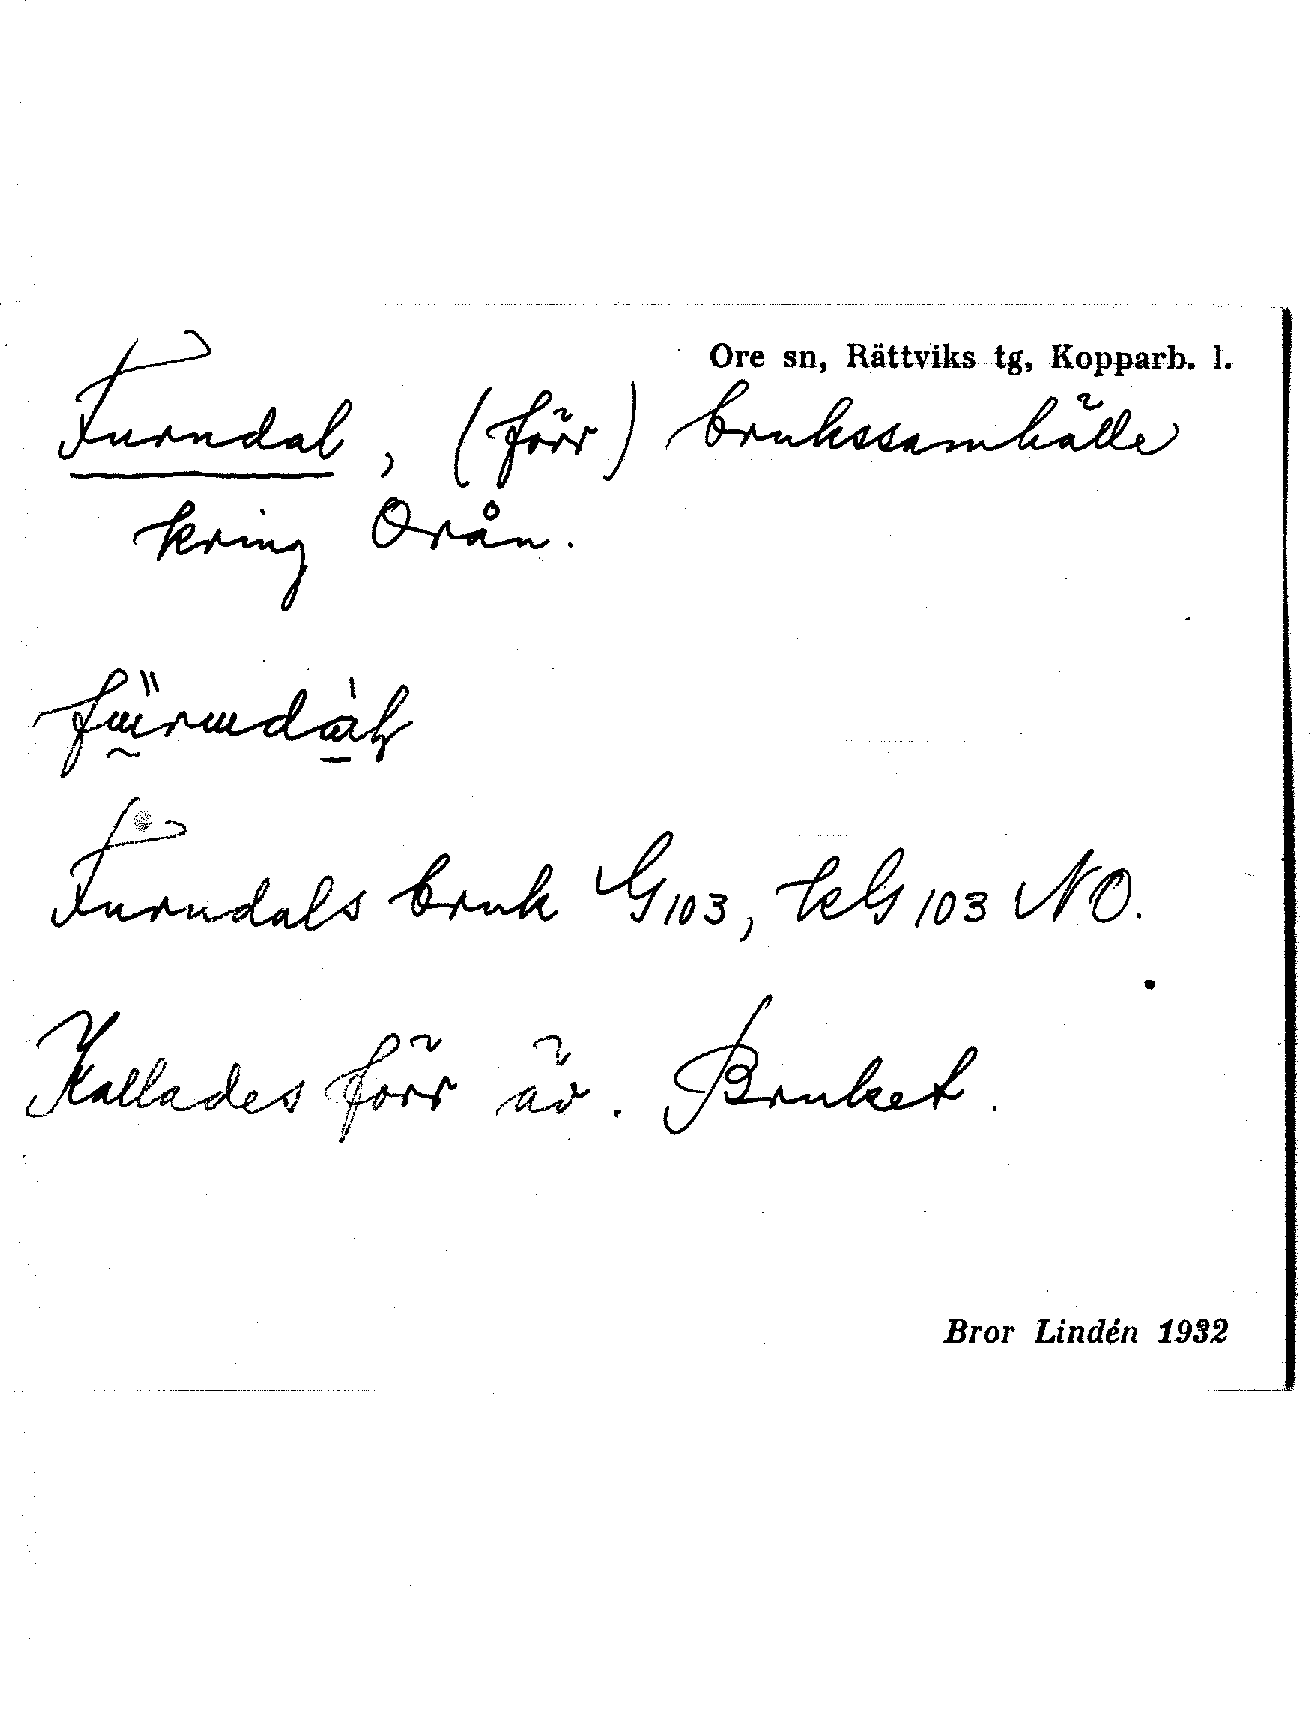 Ore sn, Rättviks tg, Kopparb. l.
Furudal, (förr) brukssamhälle
kring Orån.
Furudals bruk G 103, kG 103 NO.
Kallades förr äv. Bruket.
Bror Lindén 1932